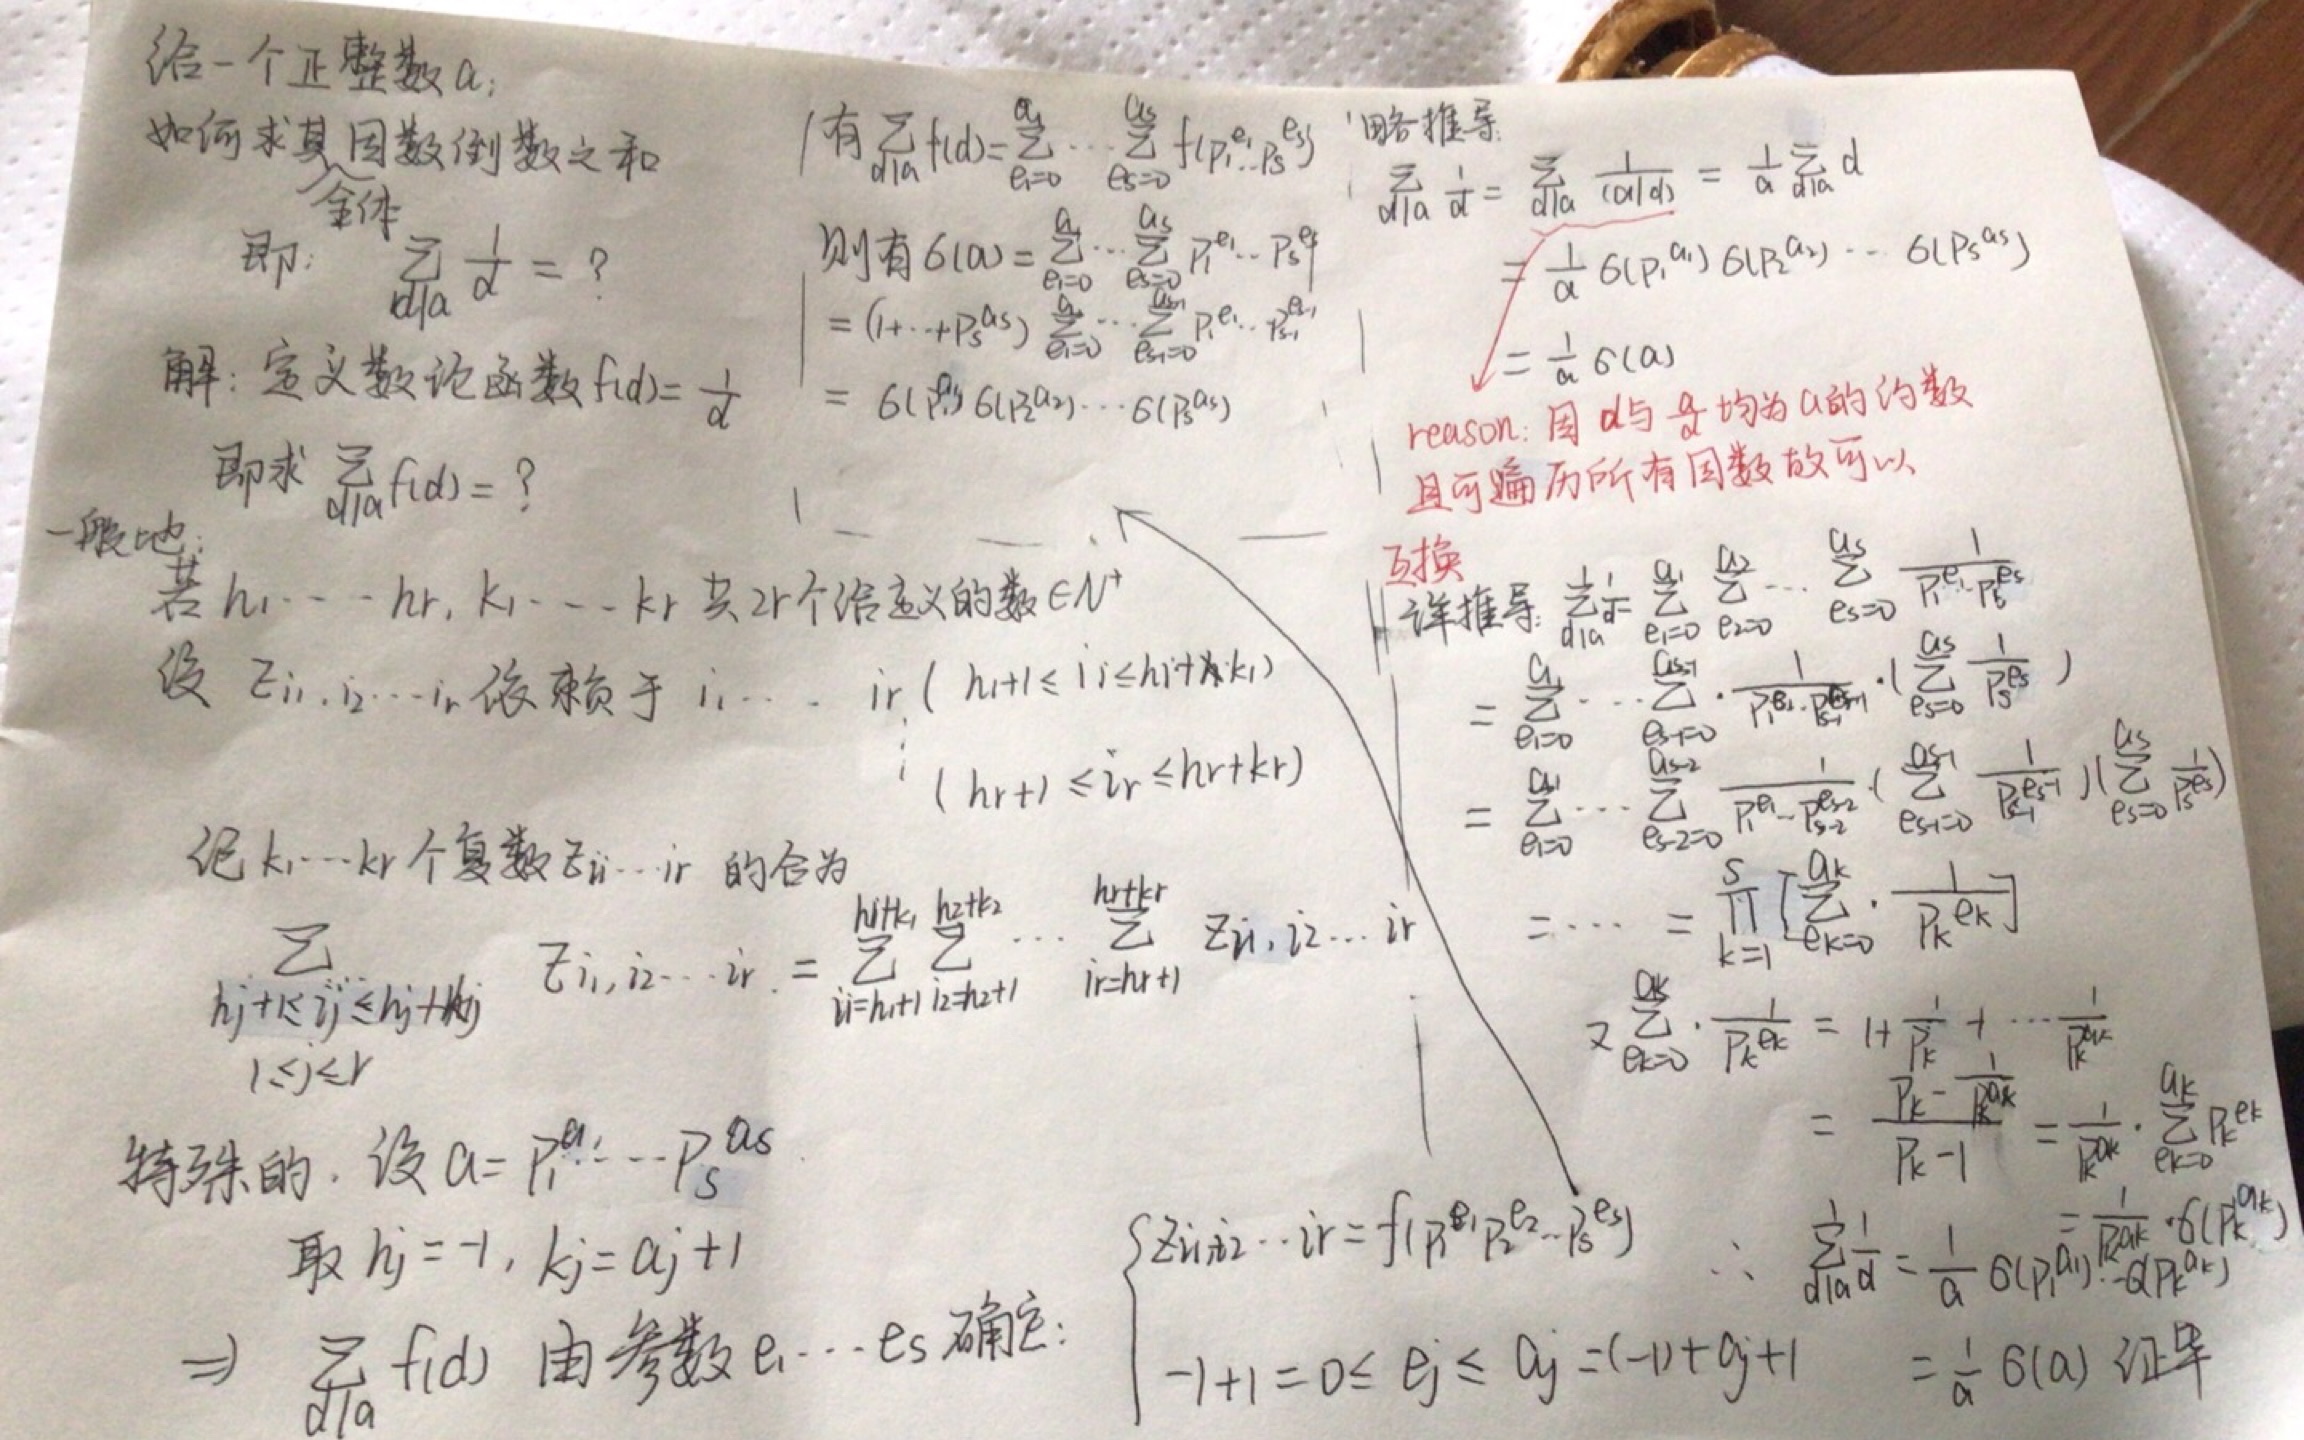 给一个正整数a;
如何求其全体因数倒数之和
即: ∑_{d|a} 1/d = ?
解: 定义数论函数f(d)= 1/d
即求 ∑_{d|a} f(d) = ?
一般地:
若 h₁ ---- hr, k₁ ---- kr 共2r个给定义的数∈N⁺
设 Z_{i₁,i₂⋯ir} 依赖于 i₁ ⋯ ir ( h₁+1 ≤ i₁ ≤ h₁+k₁)
⋮ ( hr+1 ≤ ir ≤ hr+kr)
记 k₁⋯kr 个复数 Z_{i₁⋯ir} 的合为
∑_{hj+1≤ij≤hj+kj, 1≤j≤r} Z_{i₁,i₂⋯ir} = ∑_{i₁=h₁+1}^{h₁+k₁} ∑_{i₂=h₂+1}^{h₂+k₂} ⋯ ∑_{ir=hr+1}^{hr+kr} Z_{i₁,i₂⋯ir}
特殊的. 设 a = p₁^{a₁} ⋯ p_s^{a_s}
取 hj = -1, kj = aj+1
⇒ ∑_{d|a} f(d) 由参数 e₁⋯es 确定:
{ Z_{i₁,i₂⋯ir} = f(p₁^{e₁} p₂^{e₂} ⋯ p_s^{e_s})
-1+1 = 0 ≤ ej ≤ aj = (-1)+aj+1
有 ∑_{d|a} f(d) = ∑_{e₁=0}^{a₁} ⋯ ∑_{es=0}^{as} f(p₁^{e₁}⋯p_s^{e_s})
则有 6(a) = ∑_{e₁=0}^{a₁} ⋯ ∑_{es=0}^{as} p₁^{e₁} ⋯ p_s^{e_s}
= (1+⋯+p_s^{a_s}) ∑_{e₁=0}^{a₁} ⋯ ∑_{e_{s-1}=0}^{a_{s-1}} p₁^{e₁} ⋯ p_{s-1}^{e_{s-1}}
= 6(p₁^{a₁}) 6(p₂^{a₂}) ⋯ 6(p_s^{a_s})
略推导:
∑_{d|a} 1/d = ∑_{d|a} 1/(a/d) = 1/a ∑_{d|a} d
= 1/a 6(p₁^{a₁}) 6(p₂^{a₂}) ⋯ 6(p_s^{a_s})
= 1/a 6(a)
reason: 因 d与 a/d 均为a的约数
且可遍历所有因数故可以
互换
详推导: ∑_{d|a} 1/d = ∑_{e₁=0}^{a₁} ∑_{e₂=0}^{a₂} ⋯ ∑_{es=0}^{as} 1/(p₁^{e₁}⋯p_s^{e_s})
= ∑_{e₁=0}^{a₁} ⋯ ∑_{e_{s-1}=0}^{a_{s-1}} · 1/(p₁^{e₁}⋯p_{s-1}^{e_{s-1}}) · (∑_{es=0}^{as} 1/p_s^{e_s})
= ∑_{e₁=0}^{a₁} ⋯ ∑_{e_{s-2}=0}^{a_{s-2}} 1/(p₁^{e₁}⋯p_{s-2}^{e_{s-2}}) · (∑_{e_{s-1}=0}^{a_{s-1}} 1/p_{s-1}^{e_{s-1}}) (∑_{es=0}^{as} 1/p_s^{e_s})
= ⋯ = ∏_{k=1}^{s} [∑_{ek=0}^{ak} · 1/p_k^{e_k}]
又 ∑_{ek=0}^{ak} · 1/p_k^{e_k} = 1 + 1/p_k + ⋯ 1/p_k^{a_k}
= (p_k - 1/p_k^{a_k})/(p_k - 1) = 1/p_k^{a_k} · ∑_{ek=0}^{ak} p_k^{e_k}
= 1/p_k^{a_k} · 6(p_k^{a_k})
∴ ∑_{d|a} 1/d = 1/a 6(p₁^{a₁}) ⋯ 6(p_k^{a_k})
= 1/a 6(a) 证毕